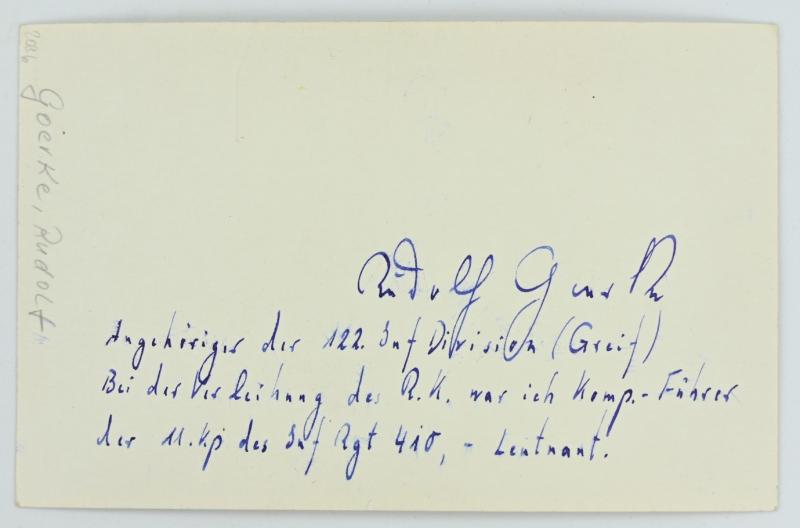 Goerke, Rudolf
Rudolf Goerke
Angehöriger der 122. Inf Division (Greif)
Bei der Verleihung des R.K. war ich Komp.-Führer
der 11.Kp des Inf Rgt 410, - Leutnant.